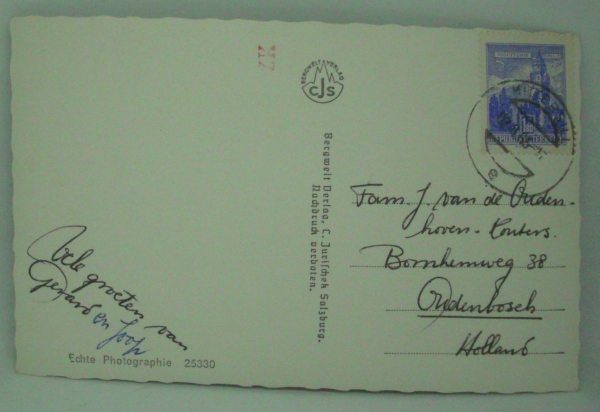 ZK
BERGWELT VERLAG
CJS
Bergwelt Verlag, C. Jurischek Salzburg.
Nachdruck verboten.
Fam. J. van de Ouden-
hoven-Kouters.
Bornhemweg 38
Oudenbosch
Holland
Vele groeten van
Gerard en Joop
Echte Photographie 25330